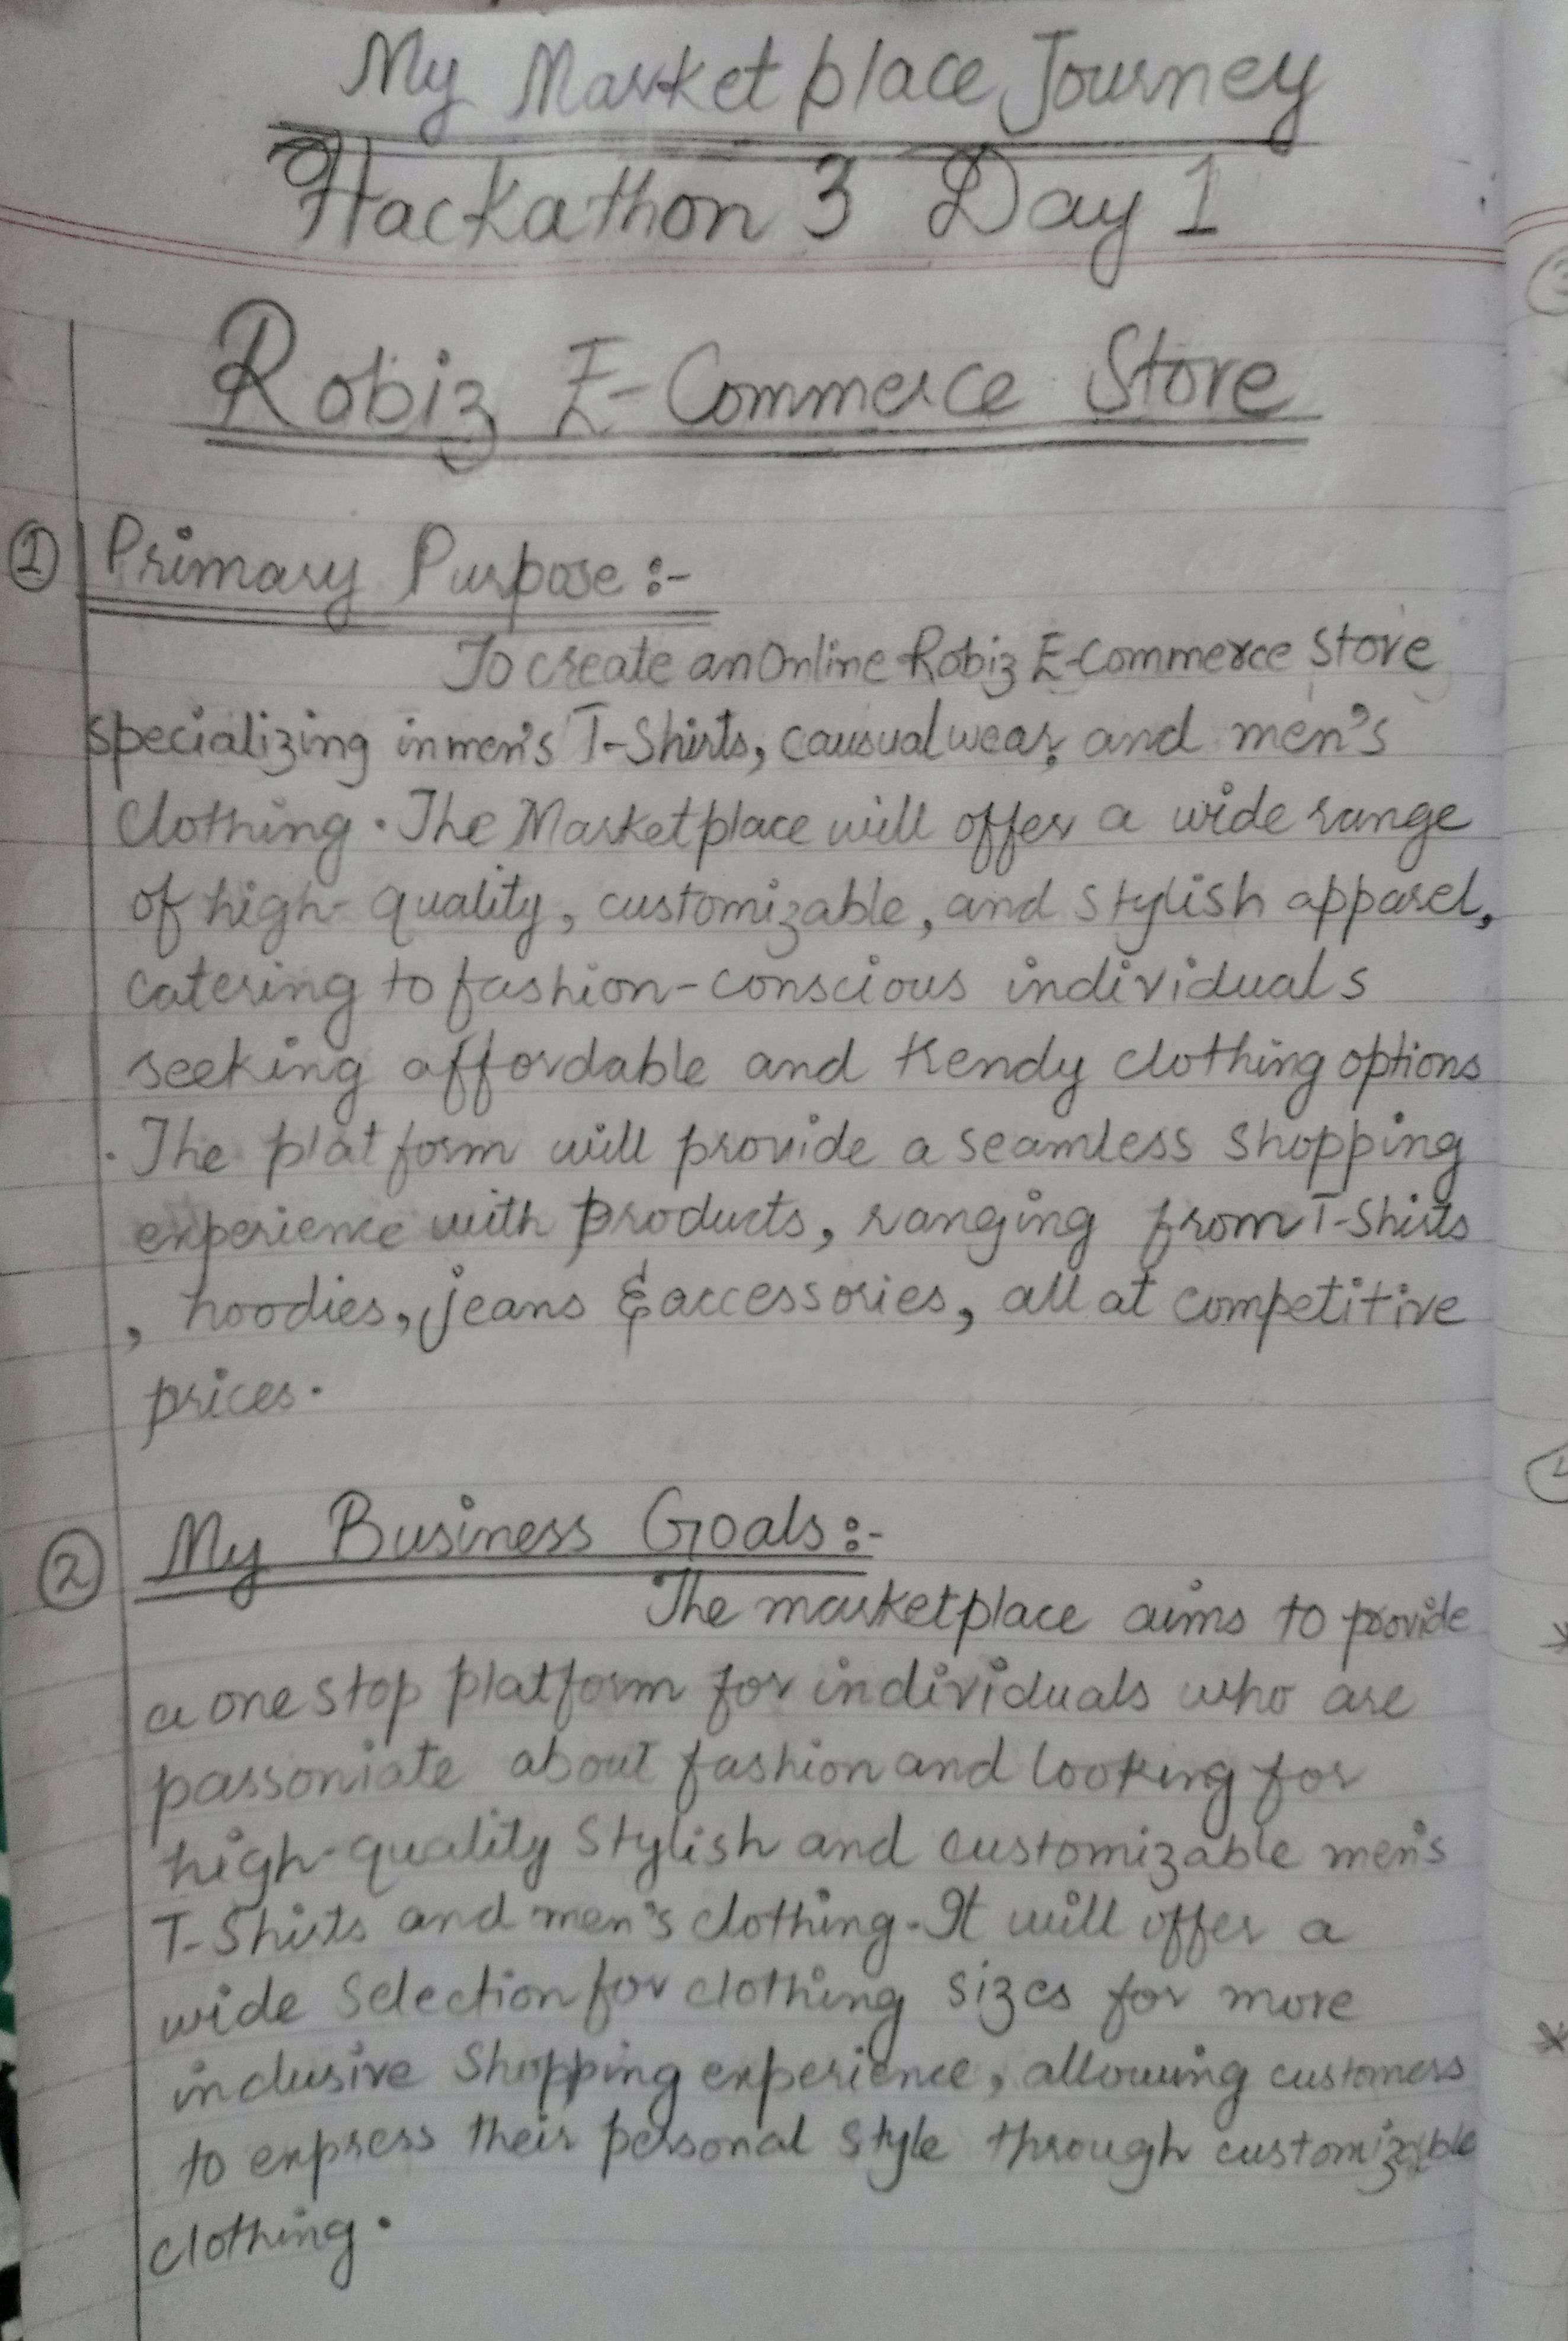 My Marketplace Journey
Hackathon 3 Day 1
Robiz E-Commerce Store
① Primary Purpose :-
To create an Online Robiz E-Commerce Store
specializing in men's T-Shirts, causual wear, and men's
Clothing. The Marketplace will offer a wide range
of high-quality, customizable, and stylish apparel,
catering to fashion-conscious individuals
seeking affordable and trendy clothing options
. The platform will provide a seamless shopping
experience with products, ranging from T-Shirts
, hoodies, jeans & accessories, all at competitive
prices.
② My Business Goals :-
The marketplace aims to provide
a one stop platform for individuals who are
passoniate about fashion and looking for
high-quality stylish and customizable men's
T-Shirts and men's clothing. It will offer a
wide selection for clothing sizes for more
inclusive shopping experience, allowing customers
to express their personal style through customizable
clothing.